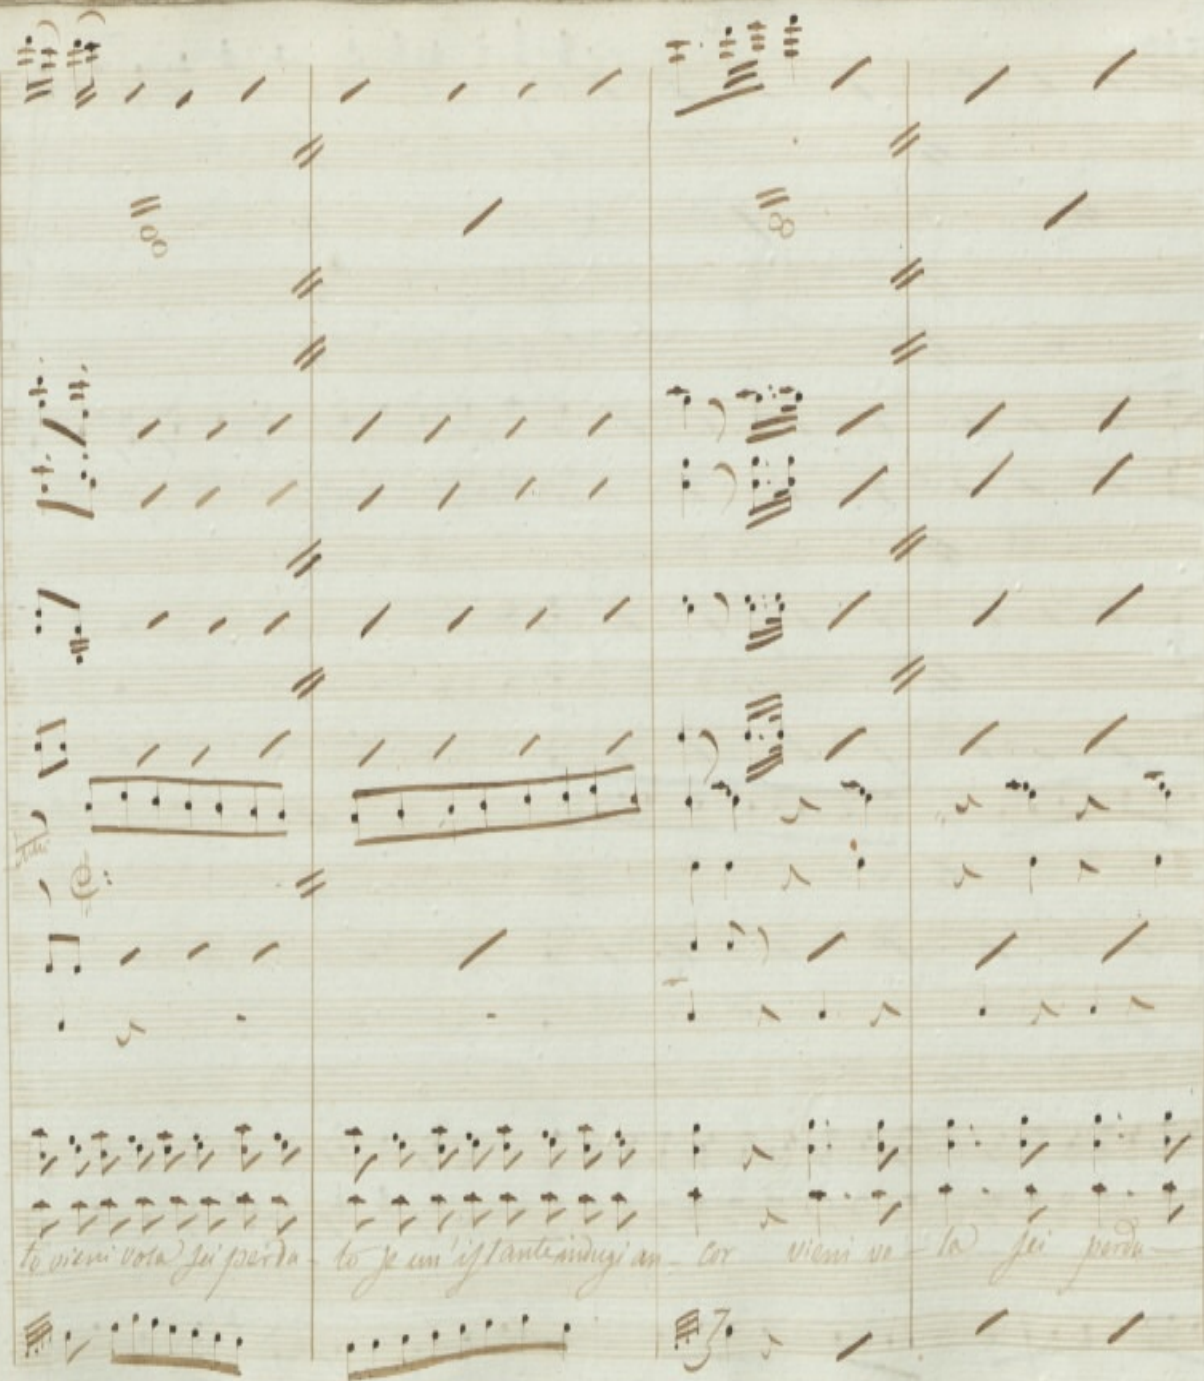 to vieni vola sei perdu- to se un' istante indugi an- cor vieni vo- la sei perdu-